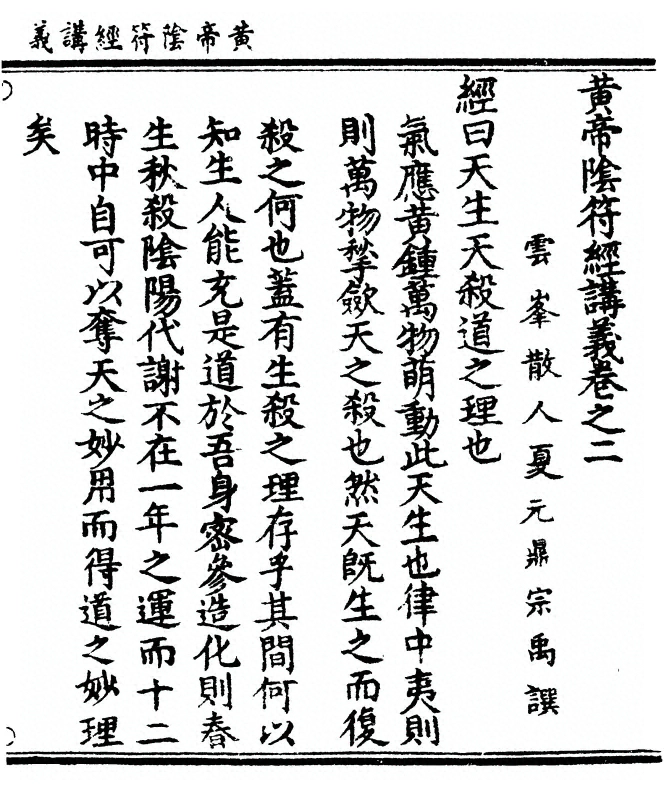 義講經符陰帝黃
黃帝陰符經講義卷之二
雲峯散人夏元鼎宗禹譔
經曰天生天殺道之理也
氣應黃鍾萬物萌動此天生也律中夷則
則萬物揫歛天之殺也然天既生之而復
殺之何也蓋有生殺之理存乎其間何以
知生人能充是道於吾身密參造化則春
生秋殺陰陽代謝不在一年之運而十二
時中自可以奪天之妙用而得道之妙理
矣